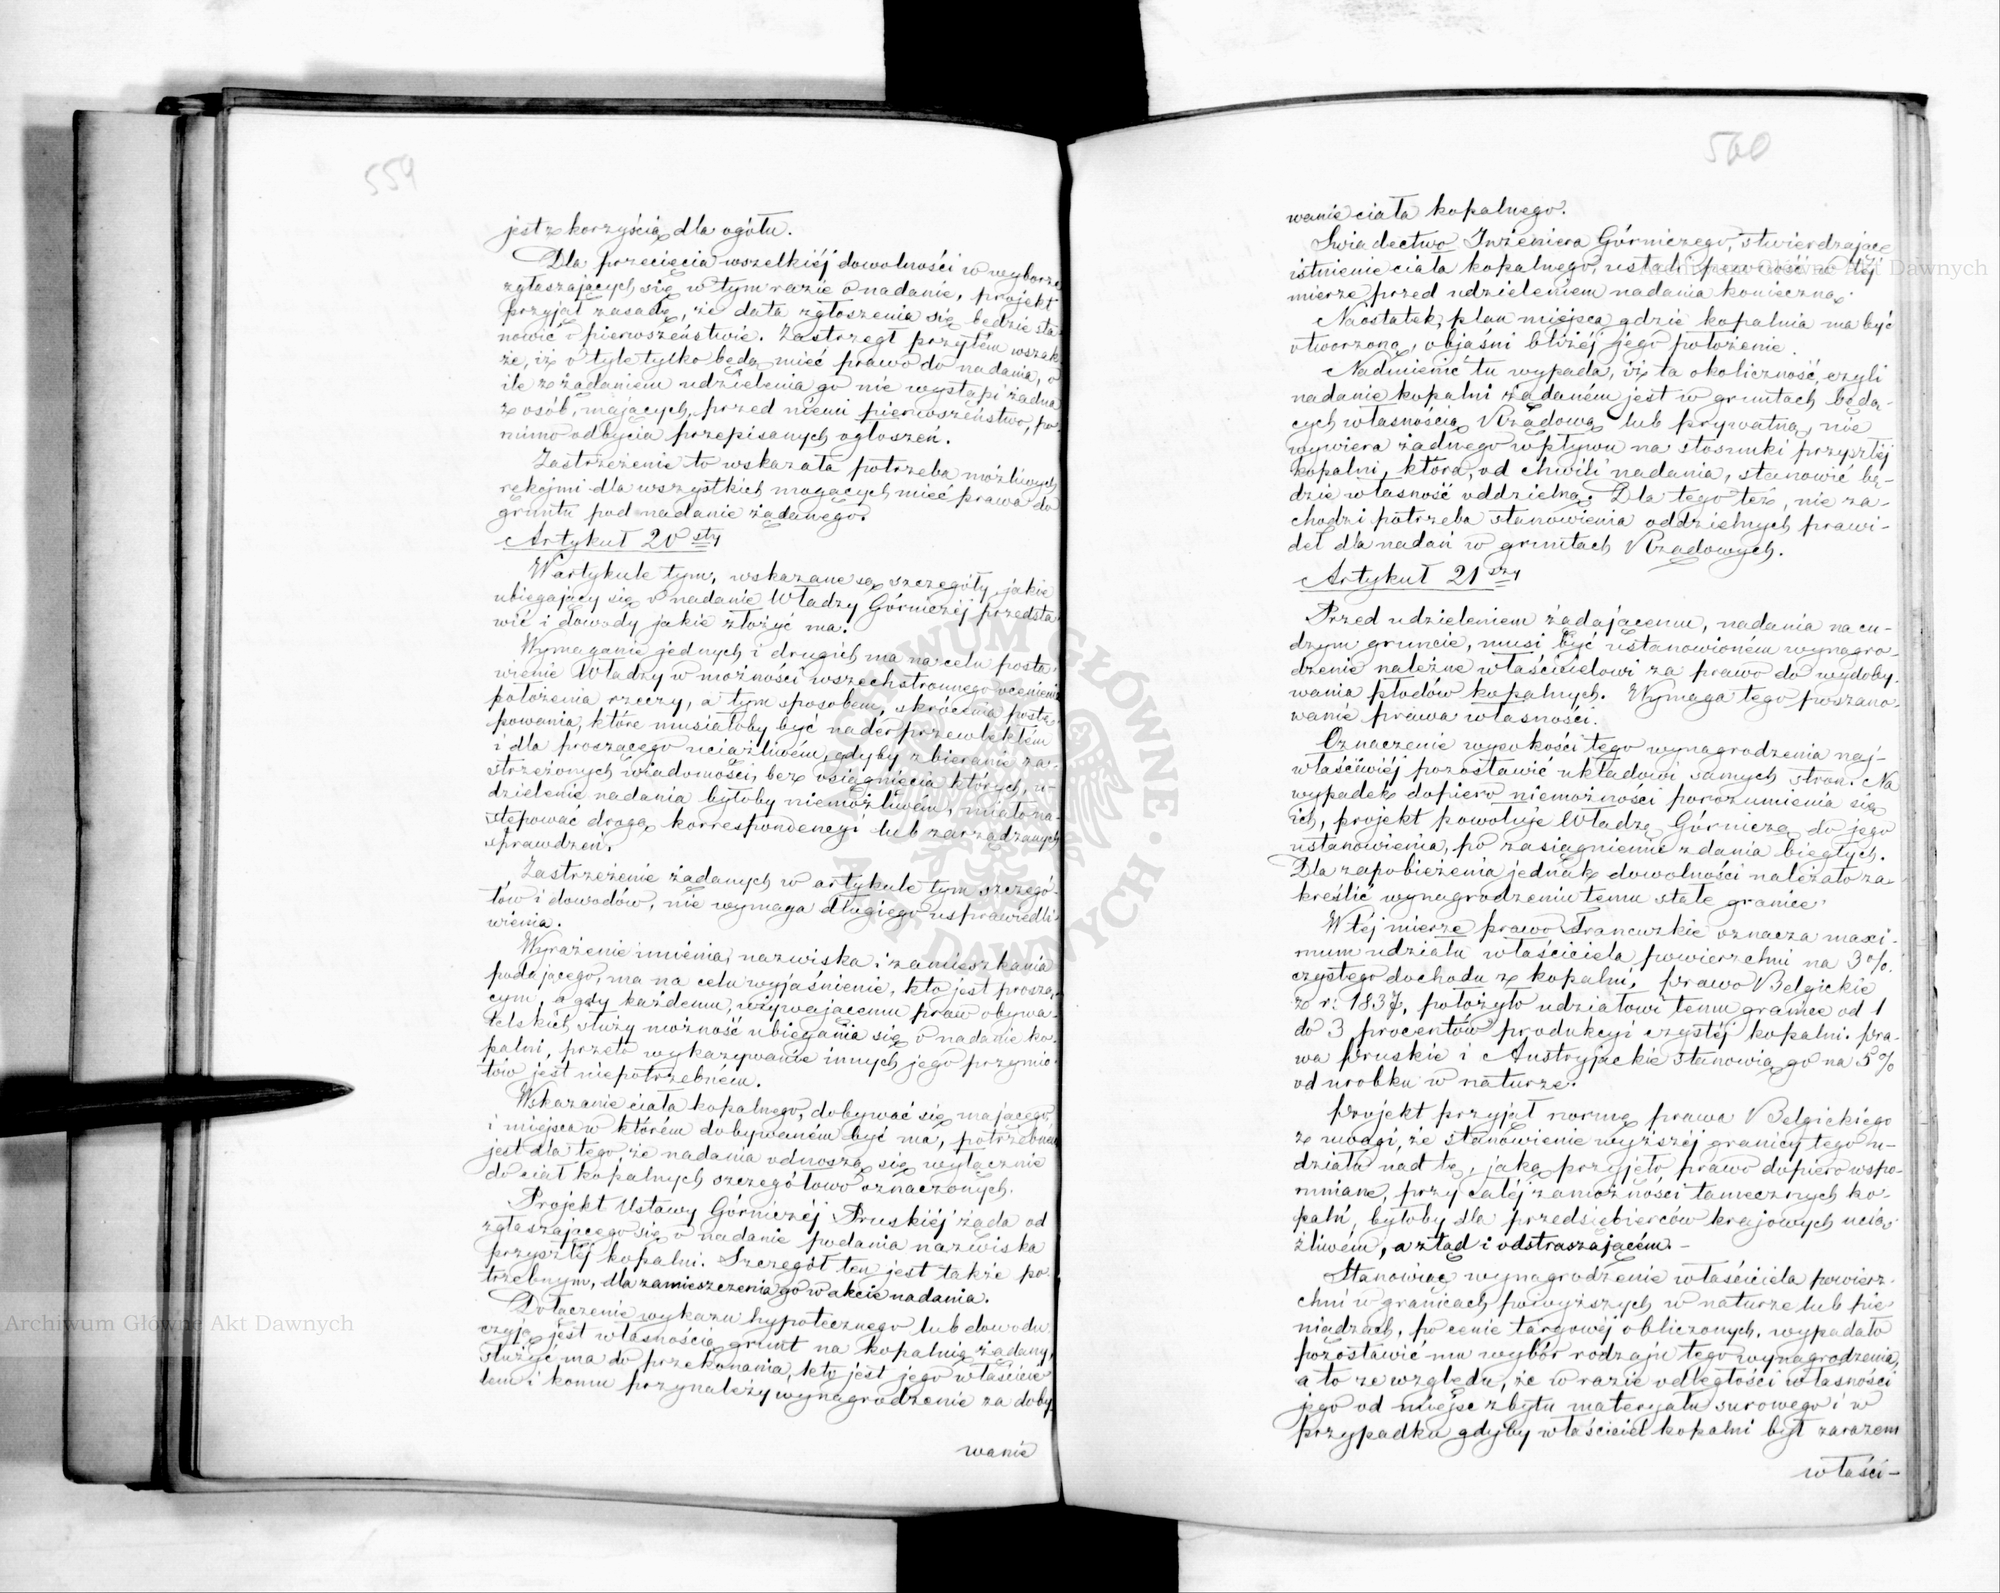 559
jest z korzyścią dla ogółu.
Dla przecięcia wszelkiéj dowolności w wyborze
zgłaszających się w tym razie o nadanie, projekt
przyjął zasadę, że data zgłoszenia się będzie sta-
nowić o pierwszeństwie. Zastrzegł przytém wszak-
że, iż o tyle tylko będą mieć prawo do nadania, o
ile z żądaniem udzielenia go nie wystąpi żadna
z osób, mających przed niemi pierwszeństwo, po-
mimo odbycia przepisanych ogłoszeń.
Zastrzeżenie to wskazała potrzeba możliwych
rękojmi dla wszystkich mogących mieć prawa do
gruntu pod nadanie żądanego.
Artykuł 20sty
W artykule tym, wskazane są szczegóły, jakie
ubiegający się o nadanie Władzy Górniczéj przedsta
wić i dowody jakie złożyć ma.
Wymaganie jednych i drugich ma na celu posta-
wienie Władzy w możności wszechstronnego ocenienia
położenia rzeczy, a tym sposobem, skrócenia postę-
powania, które musiałoby być nader przewlekłém
i dla proszącego uciążliwém, gdyby zbieranie za-
strzeżonych wiadomości, bez osiągnięcia których, u-
dzielenie nadania byłoby niemożliwém, miało na-
stępować drogą korrespondencyi lub zarządzanych
sprawdzeń.
Zastrzeżenie żądanych w artykule tym szczegó-
łów i dowodów, nie wymaga długiego usprawiedli-
wienia.
Wyrażenie imienia, nazwiska i zamieszkania
podającego, ma na celu wyjaśnienie, kto jest proszą-
cym, a gdy każdemu, używającemu praw obywa-
telskich służy możność ubiegania się o nadanie ko-
palni, przeto wykazywanie innych jego przymio-
tów jest niepotrzebném.
Wskazanie ciała kopalnego, dobywać się mającego,
i miejsca w którém dobywaném być ma, potrzebném
jest dla tego, że nadania odnoszą się wyłącznie
do ciał kopalnych szczegółowo oznaczonych.
Projekt Ustawy Górniczéj Pruskiéj żąda od
zgłaszającego się o nadanie podania nazwiska
przyszłéj kopalni. Szczegół ten jest także po-
trzebnym, dla zamieszczenia go w akcie nadania.
Dołączenie wykazu hypotecznego lub dowodu
czyją jest własnością grunt na kopalnię żądany,
służyć ma do przekonania, kto jest jego właścicie-
lem i komu przynależy wynagrodzenie za doby-
wanie
560
wanie ciała kopalnego.
Świadectwo Inżeniera Górniczego, stwierdzające
istnienie ciała kopalnego, ustali pewność w téj
mierze przed udzieleniem nadania konieczną.
Naostatek, plan miejsca gdzie kopalnia ma być
otworzoną, objaśni bliżéj jego położenie.
Nadmienić tu wypada, iż ta okoliczność, czyli
nadanie kopalni żądaném jest w gruntach będą-
cych własnością Rządową lub prywatną, nie
wywiera żadnego wpływu na stosunki przyszłéj
kopalni, która, od chwili nadania, stanowić bę-
dzie własność oddzielną. Dla tego też, nie za-
chodzi potrzeba stanowienia oddzielnych prawi-
deł dla nadań w gruntach Rządowych.
Artykuł 21szy
Przed udzieleniem żądającemu, nadania na cu-
dzym gruncie, musi być ustanowioném wynagro-
dzenie należne właścicielowi za prawo do wydoby-
wania płodów kopalnych. Wymaga tego poszano-
wanie prawa własności.
Oznaczenie wysokości tego wynagrodzenia naj-
właściwiéj pozostawić układowi samych stron. Na
wypadek dopiero niemożności porozumienia się
ich, projekt powołuje Władzę Górniczą do jego
ustanowienia, po zasiągnieniu zdania biegłych.
Dla zapobieżenia jednak dowolności należało za-
kreślić wynagrodzeniu temu stałe granice.
W téj mierze prawo Francuzkie oznacza maxi-
mum udziału właściciela powierzchni na 3%
czystego dochodu z kopalni, prawo Belgickie
z r. 1837, położyło udziałowi temu granice od 1
do 3 procentów produkcyi czystéj kopalni. Pra-
wa Pruskie i Austryjackie stanowią go na 5%
od urobku w naturze.
Projekt przyjął normę prawa Belgickiego
z uwagi, że stanowienie wyższéj granicy tego u-
działu nad tę, jaką przyjęło prawo dopiero wspo-
mniane, przy całéj zamożności tamecznych ko-
palń, byłoby dla przedsiębierców krajowych ucią-
żliwém, a ztąd i odstraszającém. -
Stanowiąc wynagrodzenie właściciela powierz-
chni w granicach powyższych w naturze lub pie-
niądzach, po cenie targowéj obliczonych, wypadało
pozostawić mu wybór rodzaju tego wynagrodzenia,
a to ze względu, że w razie odległości własności
jego od miejsc zbytu materyału surowego i w
przypadku gdyby właściciel kopalni był zarazem
właści-
Archiwum Główne Akt Dawnych
Archiwum Główne Akt Dawnych
ARCHIWUM GŁÓWNE AKT DAWNYCH